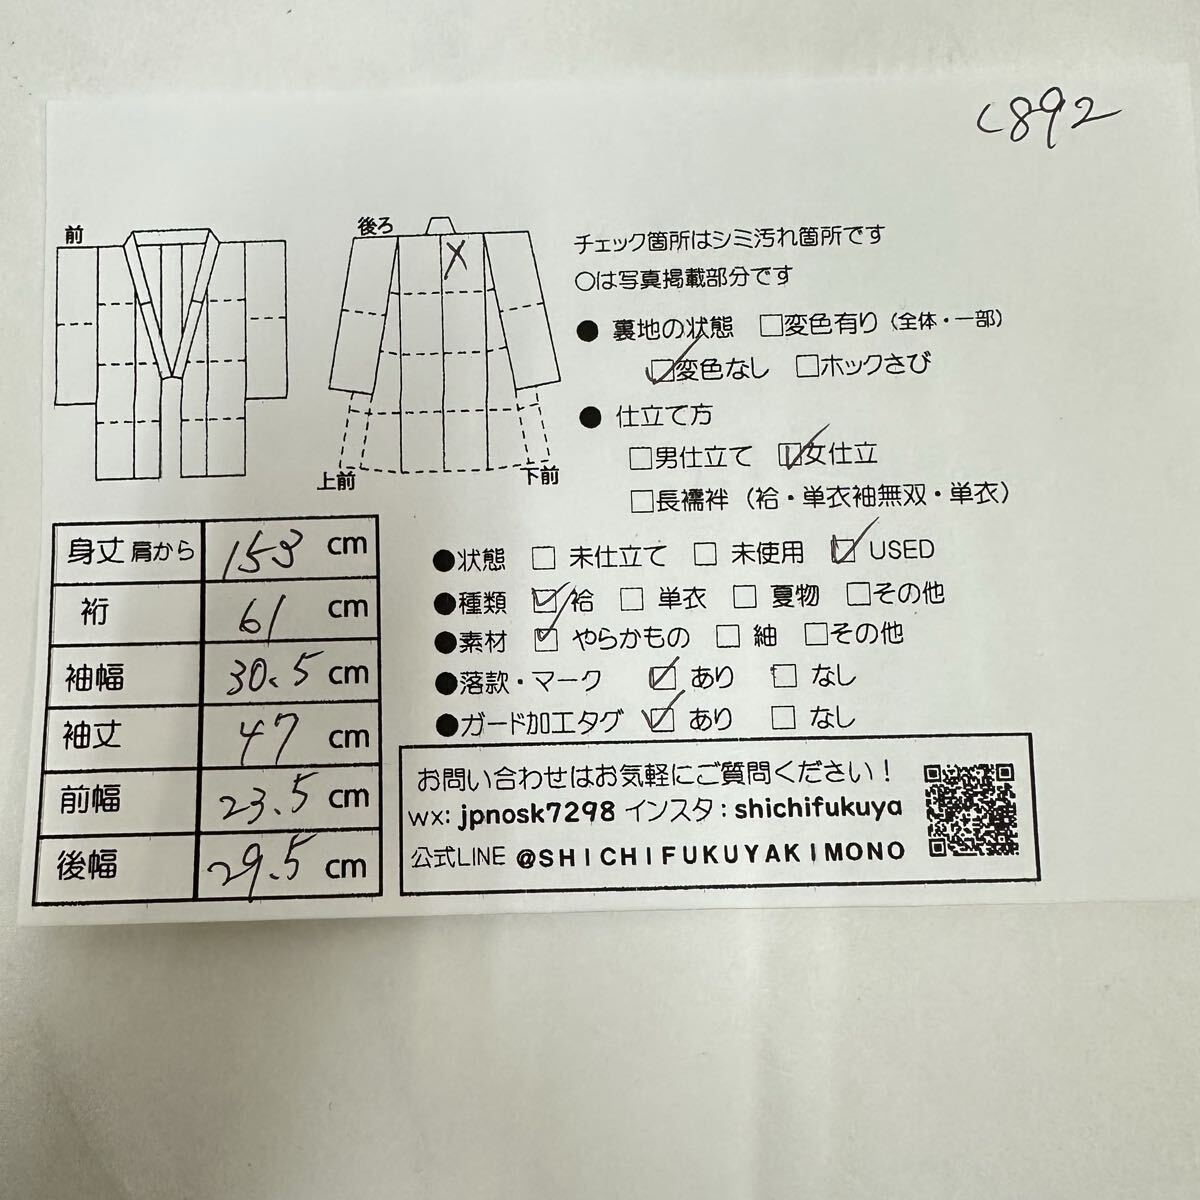 C892
前
後ろ
上前
下前
チェック箇所はシミ汚れ箇所です
〇は写真掲載部分です
● 裏地の状態 □変色有り（全体・一部）
☑変色なし □ホックさび
● 仕立て方
□男仕立て ☑女仕立
□長襦袢（袷・単衣袖無双・単衣）
●状態 □ 未仕立て □ 未使用 ☑ USED
●種類 ☑ 袷 □ 単衣 □ 夏物 □その他
●素材 ☑ やらかもの □ 紬 □その他
●落款・マーク ☑ あり □ なし
●ガード加工タグ ☑ あり □ なし
身丈 肩から 153 cm
裄 61 cm
袖幅 30.5 cm
袖丈 47 cm
前幅 23.5 cm
後幅 29.5 cm
お問い合わせはお気軽にご質問ください！
wx: jpnosk7298 インスタ : shichifukuya
公式LINE @SHICHIFUKUYAKIMONO